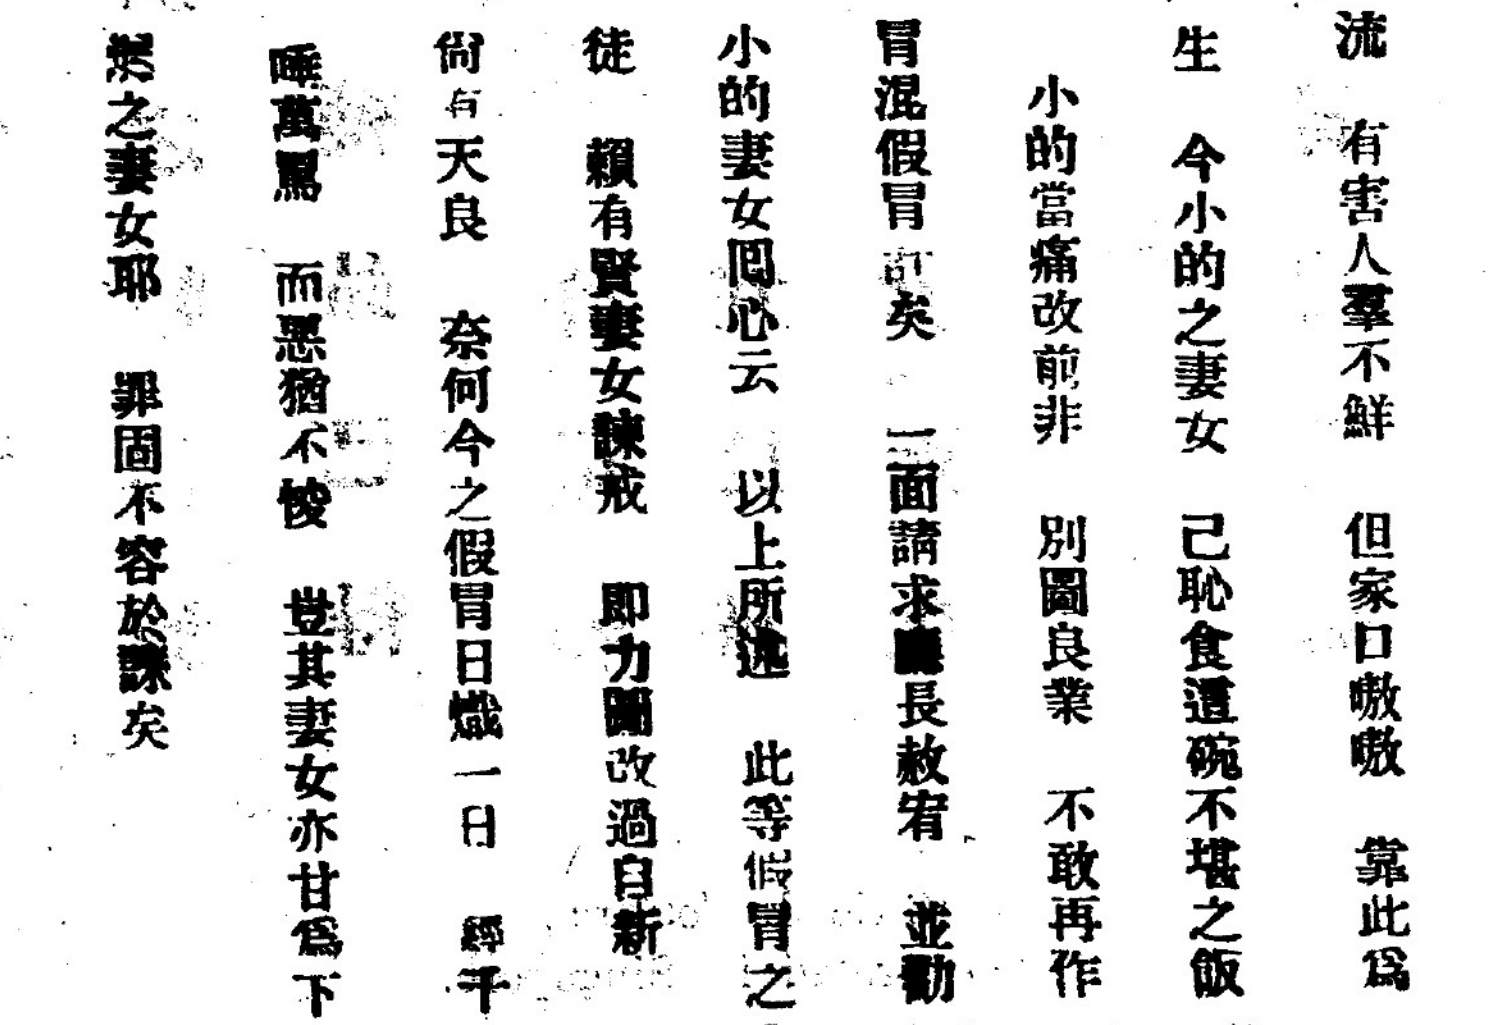 流　有害人羣不鮮　但家口嗷嗷　靠此爲
生　今小的之妻女　己恥食這碗不堪之飯
小的當痛改前非　別圖良業　不敢再作
冒混假冒　矣　一面請求廳長赦宥　並勸
小的妻女囘心云　以上所述　此等假冒之
徒　賴有賢妻女諫戒　即力圖改過自新
尙有天良　奈何今之假冒日熾一日　經千
唾萬罵　而惡猶不悛　豈其妻女亦甘爲下
流之妻女耶　罪固不容於誅矣